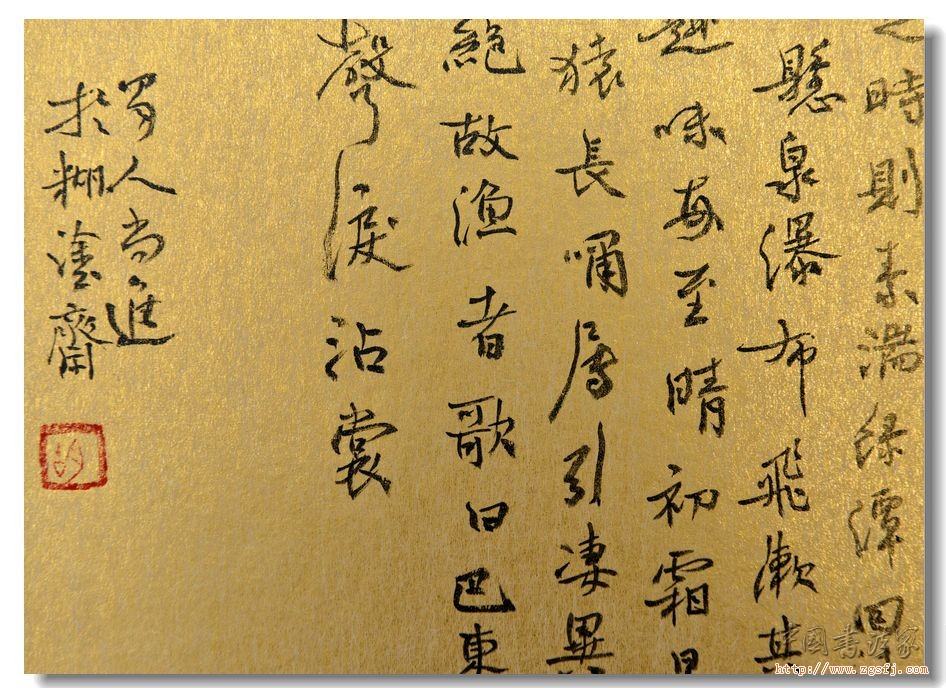 之時則素湍綠潭回
懸泉瀑布飛漱其
趣味每至晴初霜旦
猿長嘯屬引凄異
絕故漁者歌曰巴東
聲淚沾裳
蜀人尚進
於糊塗齋
中國書法家
http://www.zgsfj.com